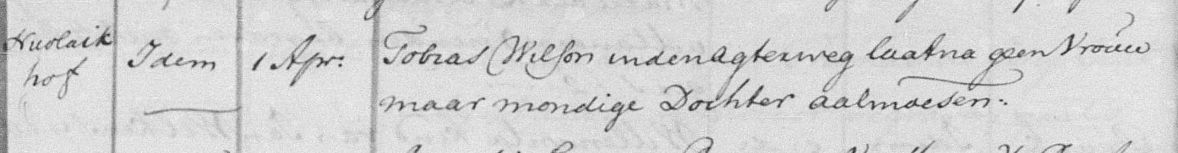 hof
Idem 1 Apr: Tobias Wilson inden agterweg laatna geen Vrouw
maar mondige Dochter aalmoesen: